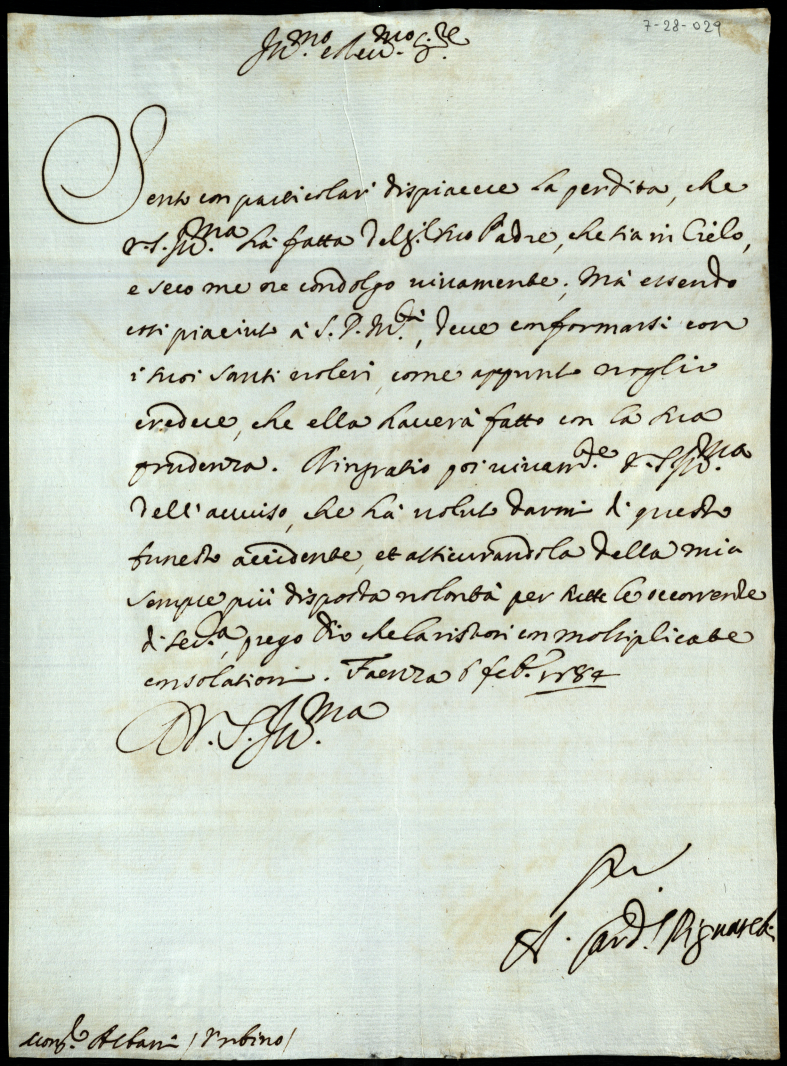 7-28-029
Ill.mo e Rev.mo Sig.re
Sento con particolar dispiacere la perdita, che
V.S. Ill.ma hà fatta del Sig.r suo Padre, che sia in Cielo,
e seco me ne condolgo vivamente; Mà essendo
così piaciuto à S. D. M.tà, deve conformarsi con
i suoi santi voleri, come appunto voglio
credere, che ella haverà fatto con la sua
prudenza. Ringratio poi vivam.te V.S. Ill.ma
dell'avviso, che hà voluto darmi di questo
funesto accidente, et assicurandola della mia
sempre più disposta volontà per tutte le occorrenze
di lei, prego Dio che la ristori con moltiplicate
consolationi. Faenza 6 feb.ro 1684
D. V. S. Ill.ma
A. Card.l Pignatelli
Mons.r Albani / Urbino /